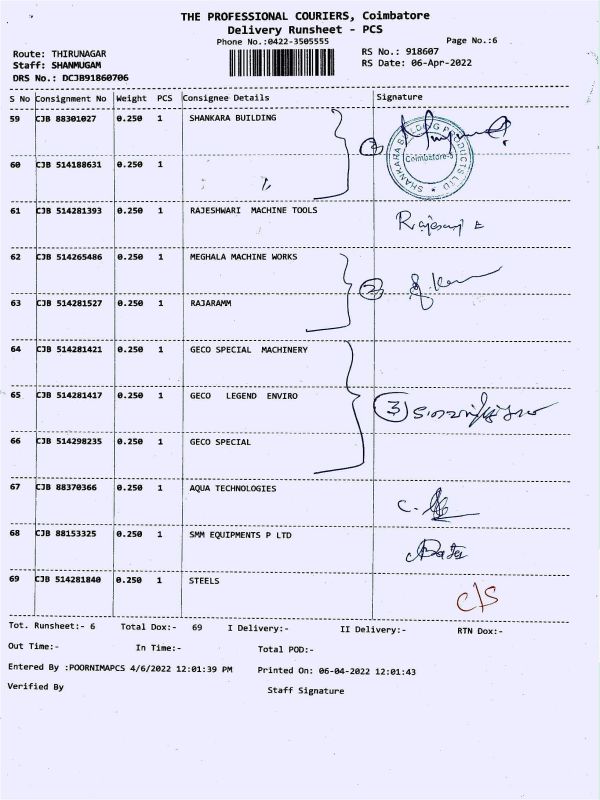 THE PROFESSIONAL COURIERS, Coimbatore
Delivery Runsheet - PCS
Phone No.:0422-3505555 Page No.:6
Route: THIRUNAGAR RS No.: 918607
Staff: SHANMUGAM RS Date: 06-Apr-2022
DRS No.: DCJB91860706
S No Consignment No Weight PCS Consignee Details Signature
59 CJB 88301027 0.250 1 SHANKARA BUILDING
SHANKARA BUILDING PRODUCTS LTD
Coimbatore-5
60 CJB 514188631 0.250 1
61 CJB 514281393 0.250 1 RAJESHWARI MACHINE TOOLS
62 CJB 514265486 0.250 1 MEGHALA MACHINE WORKS
2
63 CJB 514281527 0.250 1 RAJARAMM
64 CJB 514281421 0.250 1 GECO SPECIAL MACHINERY
65 CJB 514281417 0.250 1 GECO LEGEND ENVIRO
3
66 CJB 514298235 0.250 1 GECO SPECIAL
67 CJB 88370366 0.250 1 AQUA TECHNOLOGIES
68 CJB 88153325 0.250 1 SMM EQUIPMENTS P LTD
69 CJB 514281840 0.250 1 STEELS
c/s
Tot. Runsheet:- 6 Total Dox:- 69 I Delivery:- II Delivery:- RTN Dox:-
Out Time:- In Time:- Total POD:-
Entered By :POORNIMAPCS 4/6/2022 12:01:39 PM Printed On: 06-04-2022 12:01:43
Verified By Staff Signature